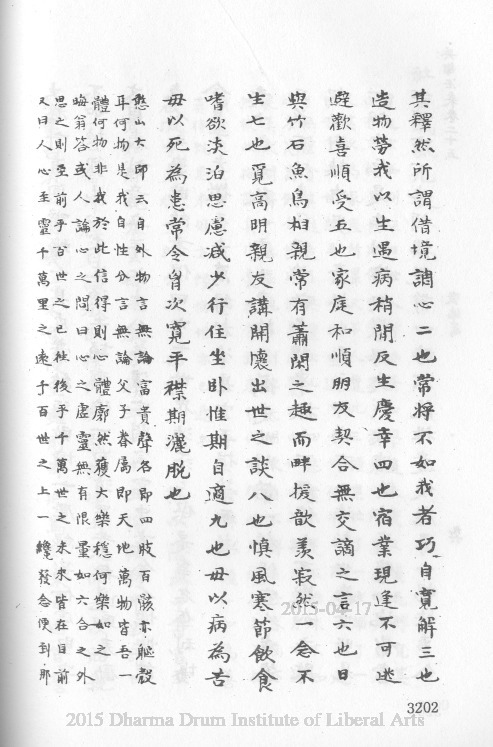 其釋然所謂借境調心二也常將不如我者巧自寬解三也
造物勞我以生遇病稍閒反生慶幸四也宿業現逢不可逃
避歡喜順受五也家庭和順朋友契合無交謫之言六也日
與竹石魚鳥相親常有蕭閑之趣而畔援歆羨寂然一念不
生七也覓高明親友講開懷出世之談八也慎風寒節飲食
嗜欲淡泊思慮減少行住坐卧惟期自適九也毋以病為苦
毋以死為患常令胷次寬平襟期灑脱也
憨山大師云自外物言無論富貴聲名即四肢百骸亦軀殼
耳何物是我自性分言無論父子眷屬即天地萬物皆吾一
體何物非我於此信得則心體廓然獲大樂穩何樂如之
晦翁答或人論心之問曰心之虛靈無有限量如六合之外
思之則至前乎百世之已往後乎千萬世之未來皆在目前
又曰人心至靈千萬里之遠千百世之上一纔發念便到那
3202
2015-04-17
2015 Dharma Drum Institute of Liberal Arts